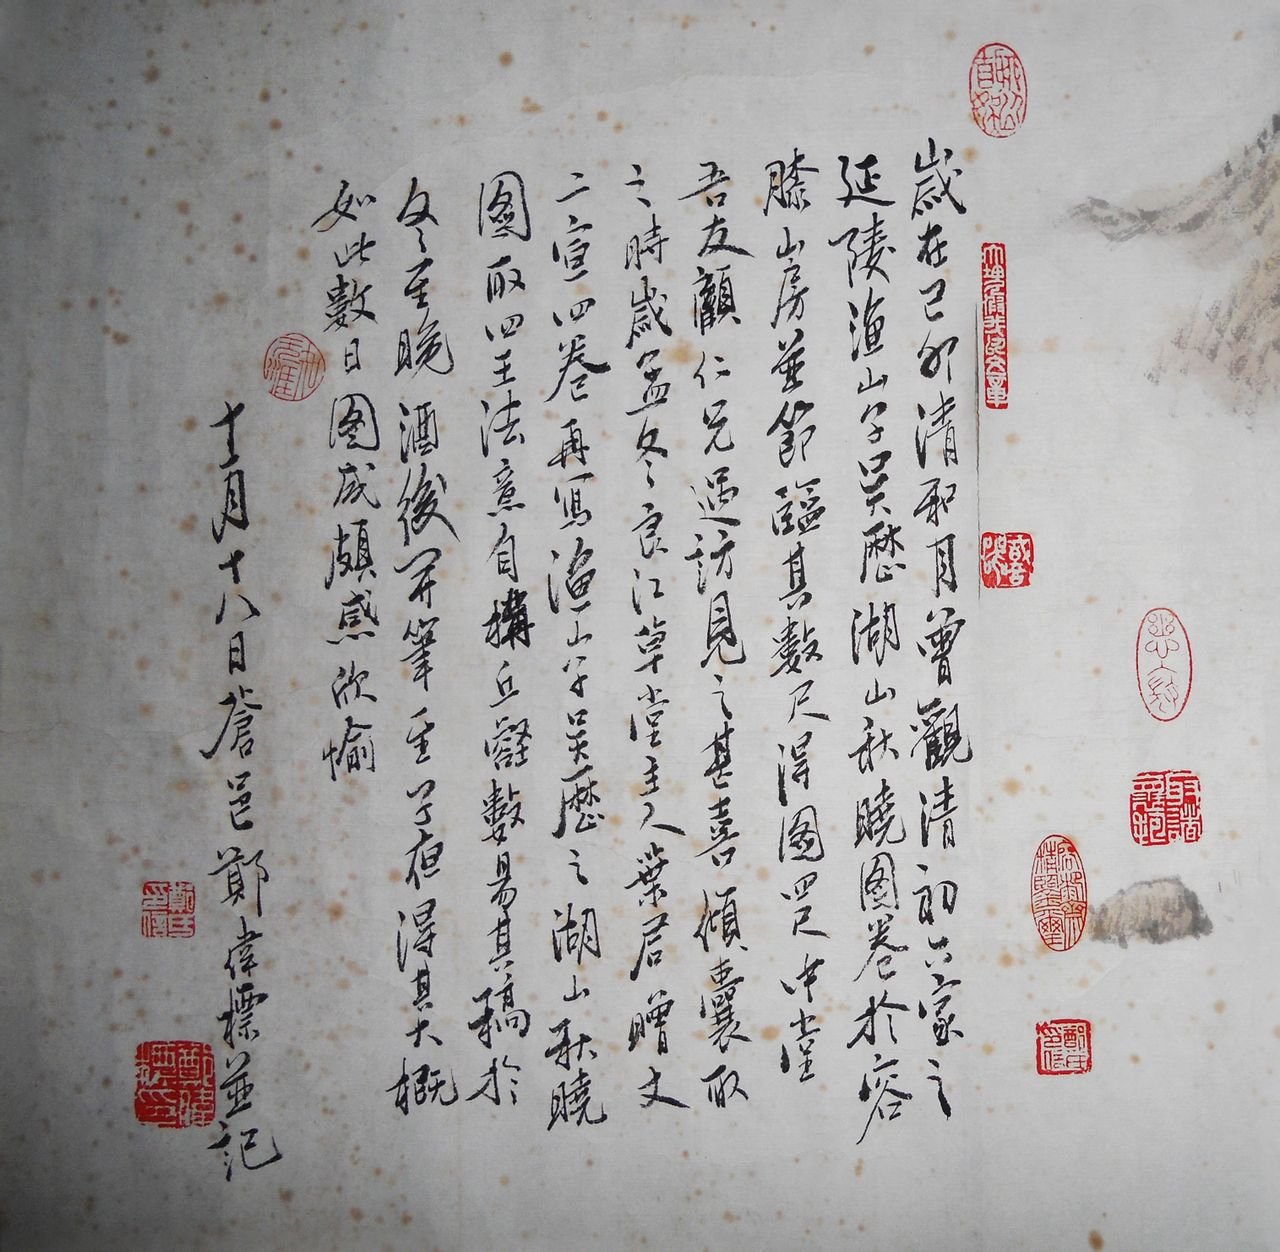 歲在己卯清和月曾觀清初六家之
延陵漁山子吳歷湖山秋曉圖卷於容
膝山房並節臨其數尺得圖四尺中堂
吾友顧仁兄過訪見之甚喜傾囊取
之時歲孟冬良江草堂主人葉君贈丈
二宣四卷再寫漁山子吳歷之湖山秋曉
圖取四王法意自構丘壑數易其稿於
冬至晚酒後開筆至子夜得其大概
如此數日圖成頗感欣愉
十一月十八日蒼邑鄭偉標並記